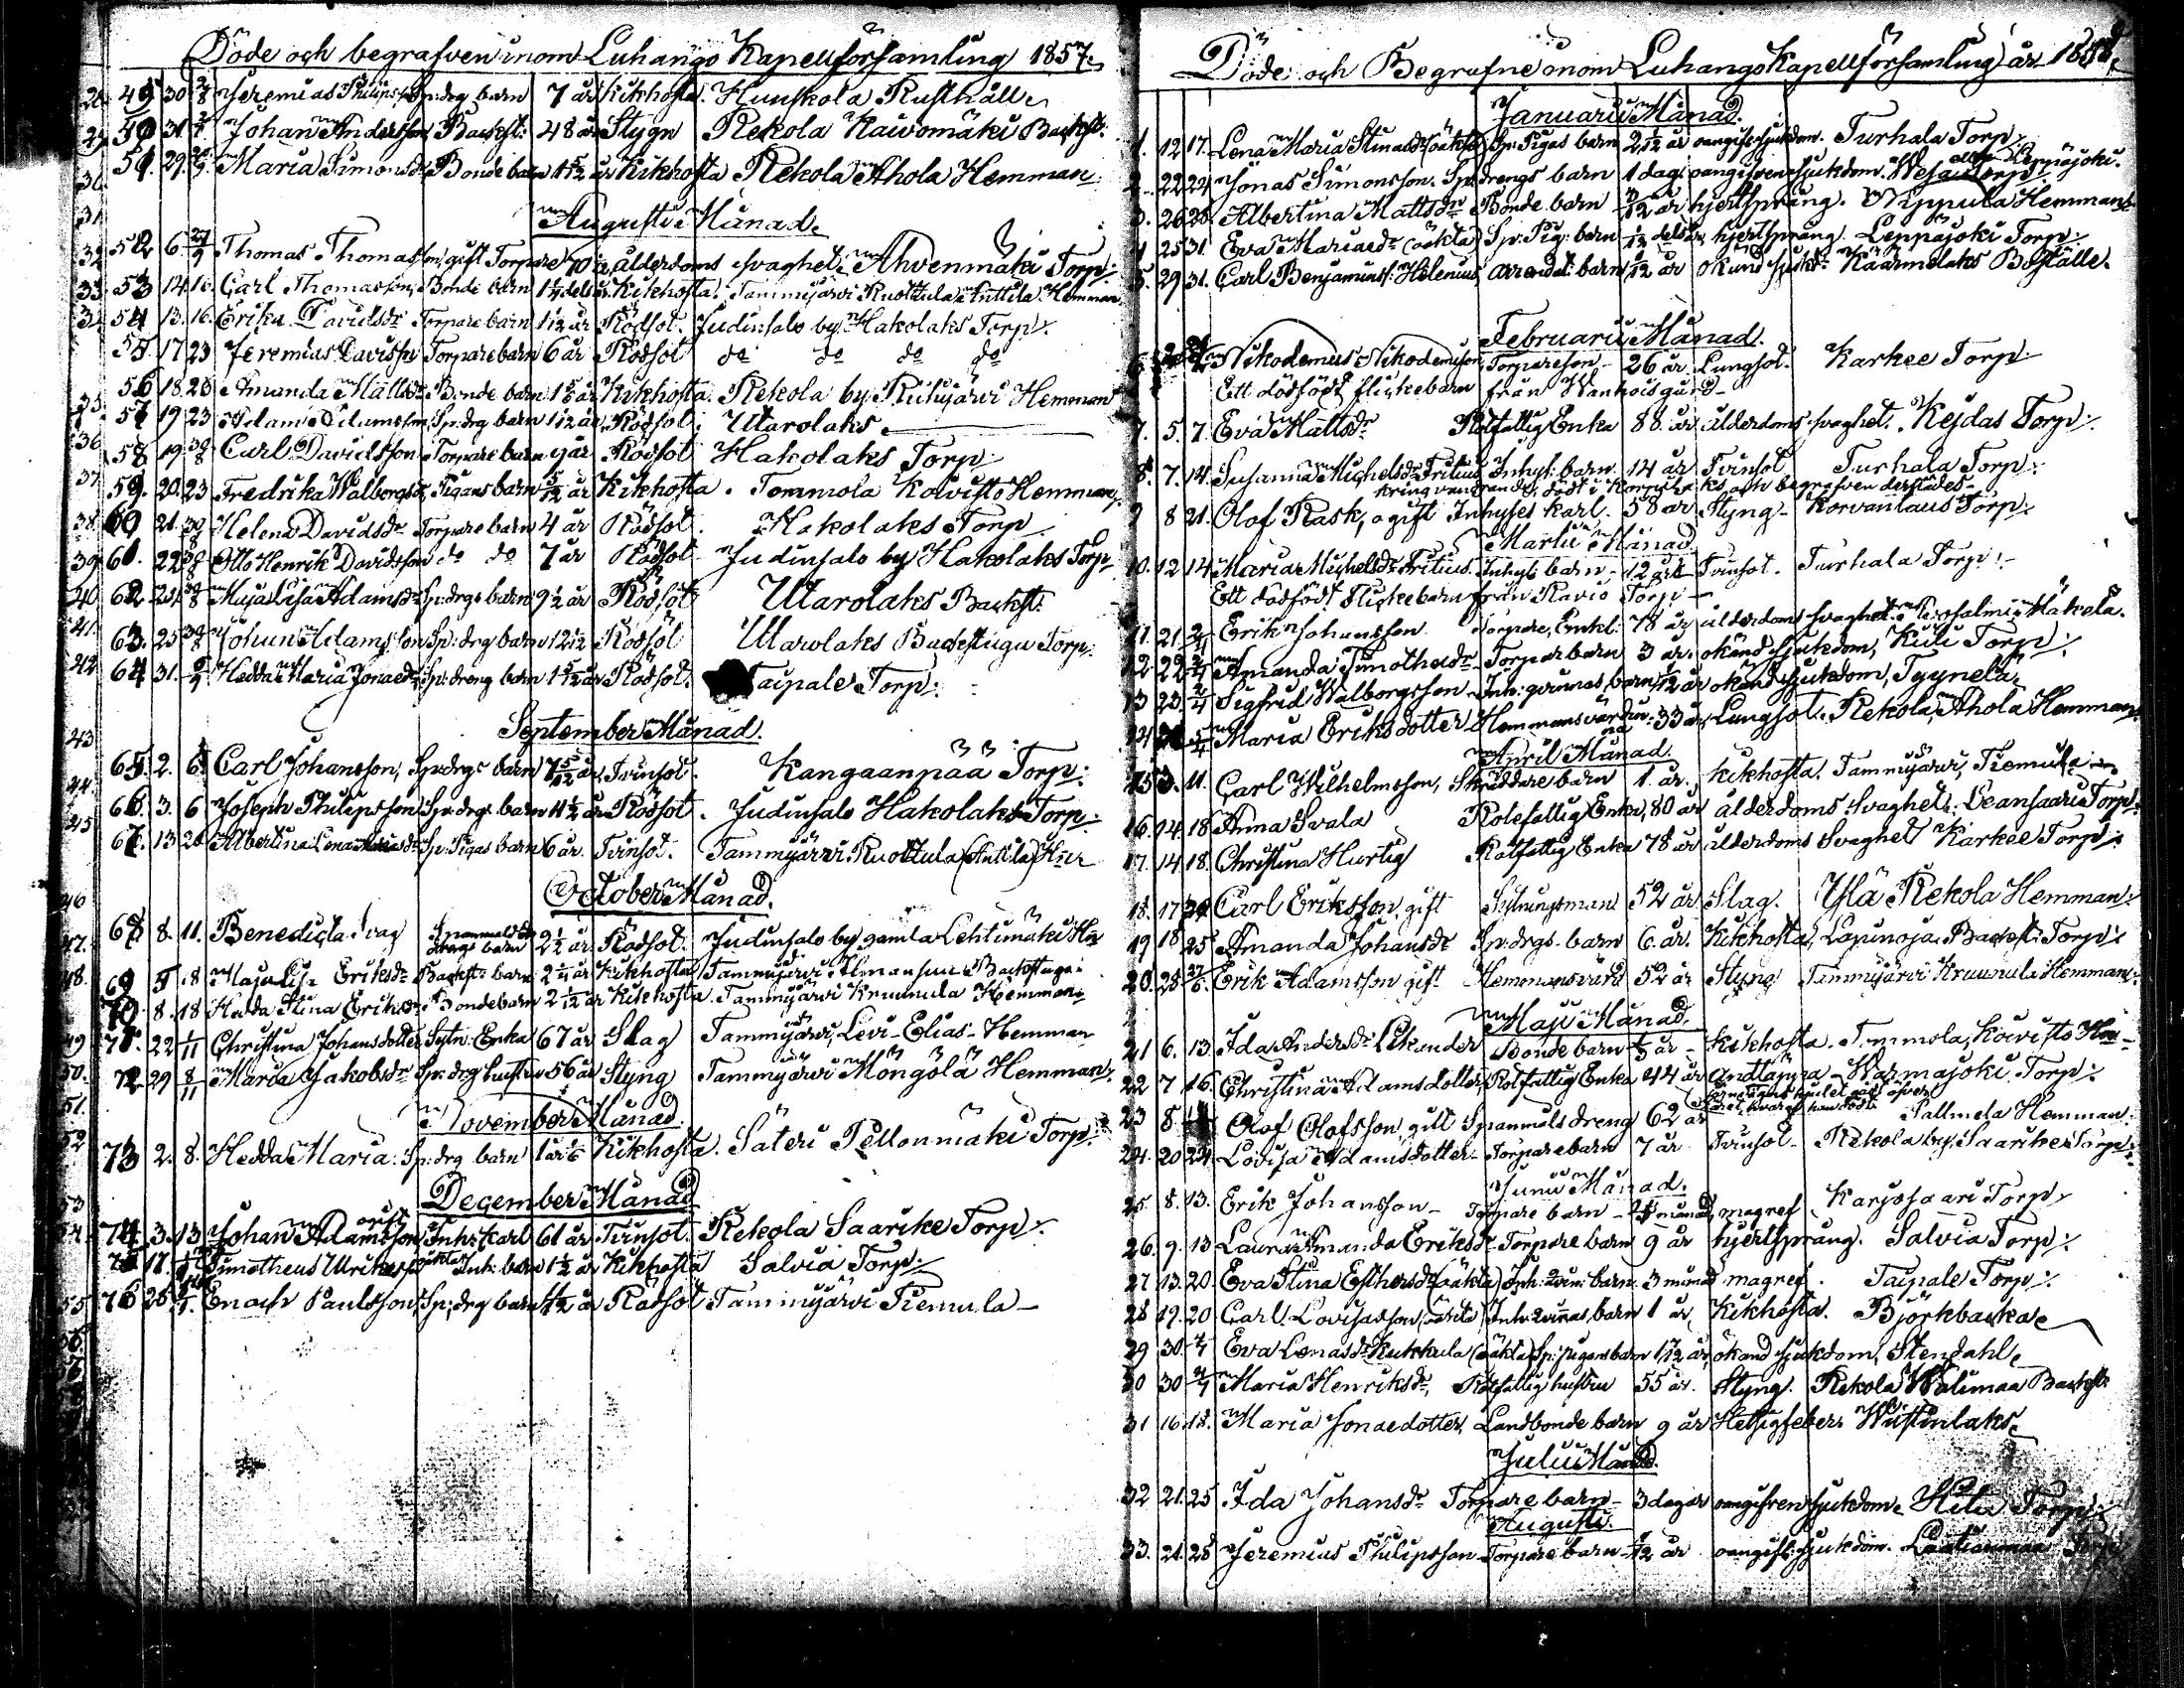 Döde och begrafven inom Luhango Kapellförsamling 1857.
28 49 30 2/8 Jeremias Philipsson Sp:drg barn 7 år Kikhosta. Hunskola Rusthåll
29 50 31 Johan Andersson Backst: 48 år Stygn Rekola Kaivomäki Backst:
30 51. 29. Maria Simonsdr Bonde barn 1 5/12 år Kikhosta Rekola Ahola Hemman
31
Augusti Månad.
32 52 6 Thomas Thomasson, gift Torpare 70 år, ålderdoms svaghet, Ahvenmäki Torp.
33 53 14 16. Carl Thomasson, Bonde barn Kikhosta. Tammijärvi Ruottula Anttila Hemman
34 54 13. 16. Erika Davidsdr Torpare barn 1 1/2 år Rödsot. Judinsalo by Hakolaks Torp.
55. 17 23 Jeremias Davidss: Torpare barn 6 år Rödsot do do do do
56 18. 23 Amanda Mattsdr Bonde barn Kikhosta. Rekola by Hemman
35 57 19 23 Adam Adamsson Sp:drg barn Rödsot. Utarolaks
36 58 19 30/8 Carl Davidsson Torpare barn 9 år Rödsot Hakolaks Torp.
37. 59. 20. 23 Fredrika Walborgsdr Pigans barn 5/12 år Kikhosta. Tommola Koivisto Hemman.
38. 60 21. 30/8 Helena Davidsdr Torpare barn 4 år Rödsot. Hakolaks Torp
39 61. 22 30/8 Otto Henrik Davidsson do do 7 år Rödsot Judinsalo by Hakolaks Torp
40 62 24. 30/8 Maja Lisa Adamsdr Sp:drgs barn 9 1/2 år Rödsot Utarolaks Backst:
41. 63. 25 30/8 Johan Adamsson Sp:drg barn 12 1/2 Rödsot Utarolaks Backstugu Torp.
42. 64 31. Hedda Maria Jonaedr Sp:dreng barn 1 5/12 år Rödsot. Taipale Torp.
43
September Månad.
65. 2. 6. Carl Johansson, Sp:drgs barn 7 5/12 år, Tvinsot. Kangaanpää Torp.
44 66. 3. 6 Joseph Philipsson Sp:drg. barn 4 1/2 år Rödsot. Judinsalo Hakolaks Torp.
45 67. 13 20 Albertina Lena Sp: Pigas barn 6 år. Tvinsot. Tammijärvi Ruottula (Anttila)
46
October Månad.
47. 68 8. 11. Benedicta Svag Spanmåls drengs barn 2 1/2 år Rödsot. Judinsalo by gamla Lehtimäki
48. 69 5 18 Maja Lisa Eriksdr Backst: barn Kikhosta Tammijärvi Backstuga
70. 8. 18 Hedda Stina Eriksdr Bondebarn Kikhosta. Tammijärvi Kruunula Hemman.
49 71. 22 1/11 Christina Johansdotter Sytn: Enka 67 år Slag Tammijärvi, Levi-Elias Hemman
50. 72 29 8/11 Maria Jakobsdr Sp:drg hustru 56 år Styng Tammijärvi Mongola Hemman
51.
November Månad
52 73 2. 8. Hedda Maria: Sp:drg barn Kikhosta. Säteri Pellonmäki Torp.
December Månad
53
54. 74 3. 13 Johan Adamsson Inh: Karl 61 år Tvinsot. Rekola Saarike Torp.
75 17. Timotheus Ulrikasson oäkta Inh: barn 1 1/2 år Kikhosta Salvia Torp.
55 76 26 Enoch Paulsson, Sp:drg barn 4 1/2 år Rödsot Tammijärvi Tiemula
56
57
Döde och Begrafne inom Luhango Kapellförsamling år 1858.
Januarii Månad.
1. 12 17. Lena Maria Stinasdr (oäkta) Sp: Pigas barn 2 1/2 år oangifven sjukdom. Turhala Torp.
2. 22 24 Jonas Simonsson. Sp:drengs barn 1 dag oangifven sjukdom. Torp. Leppäjoki.
3. 26 28. Albertina Mattsdr Bonde barn år hjertsprång. Nippula Hemman
4 25 31. Eva Mariaedr (oäkta) Sp: Pig: barn 1/12 dels år hjertsprång. Leppäjoki Torp.
5. 29 31. Carl Benjaminss: Helenius, arrendat: barn 1/12 år okänd sjukd: Käärmelaks Boställe.
Februarii Månad.
6 Nikodemus Nikodemusson Torpareson, 26 år Lungsot. Karkee Torp.
Ett dödfödt flickebarn från Wanhoisgård
7. 5. 7 Eva Mattsdr Rotfattig Enka 88 år ålderdoms svaghet. Kejdas Torp.
8. 7. 14. Susanna Michelsdr Fritius Inhys: barn. 14 år Tvinsot Turhala Torp.
kringvandrande, född i Korpilaks och begrafven derstädes
9 8 21. Olof Rask, ogift Inhyses karl. 58 år Styng Korvanlaus Torp.
Martii Månad
10. 12 14 Maria Michelsdr Fritius. Inhys: barn 12 års Tvinsot. Turhala Torp.
Ett dödfödt Flickebarn från Ravio Torp
11. 21 2/4 Erik Johansson Torpare, Enkl: 78 år ålderdoms svaghet. Mäkelä.
12. 22 2/4 Amanda Timotheidr Torpare barn 3 år. okänd sjukdom, Torp.
13 23. 2/4 Sigfrid Walborgsson Inh: qvinnas barn 1/12 år okänd sjukdom, Tyynelä,
14 5/4 Maria Eriksdotter Hemmansvärdinna 33 år, Lungsot. Rekola, Ahola Hemman.
April Månad.
15 3. 11. Carl Wilhelmsson, Skräddare barn 1. år. Kikhosta. Tammijärvi, Tiemula
16. 14. 18 Anna Svala Rotefattig Enka, 80 år ålderdoms svaghet. Leansaari Torp.
17. 14 18. Christina Hurtig Rotfattig Enka 78 år ålderdoms Svaghet Karkee Torp.
18. 17 Carl Eriksson, gift Sytningsman 52 år Slag. Ylä Rekola Hemman.
19 18 25 Amanda Johansdr Sp:drgs. barn 6. år. Kikhosta. Lapinoja Backst: Torp.
20. 28 Erik Adamsson gift Hemmansvärd 52 år Styng Tammijärvi Kruunula Hemman.
Maji Månad.
21 6. 13. Ida Andersdr Lekander Bonde barn Kikhosta. Tommola, Koivisto
22 7 16. Christina Adamsdotter, Rotfattig Enka 44 år Andtäppa Warmajoki Torp.
23 8. Olof Olofsson, gift Spanmåls dreng 62 år Sallmela Hemman.
24. 20 24 Lovisa Adamsdotter Torparebarn 7 år Tvinsot Rekola by, Saarike Torp.
Junii Månad.
25 8. 13. Erik Johansson Torpare barn månad, magref Karjosaari Torp.
26. 9. 13 Laura Amanda Eriksdr Torpare barn 9 år hjertsprång. Salvia Torp.
27 13. 20. Eva Stina Esthersdr (oäkta) Inh: qvin: barn. 3 månad magref. Taipale Torp.
28 19. 20 Carl Lovisasson (oäkta) Inh: qvinnas barn 1 år, Kikhosta. Björkbacka
29 30. 4/7 Eva Lenasdr Kukkula (oäkta) Sp: pigans barn 1 1/12 år, okänd sjukdom, Stendahl
30 30 4/7 Maria Henriksdr, Rotfattig hustru 55 år. Styng. Rekola Walimaa Backst:
31 16. 18. Maria Jonaedotter, Landbonde barn 9 år Hetsigfeber.
Julii Månad.
32 21. 25 Ida Johansdr Torpare barn 3 dagar oangifven sjukdom. Torp.
Augusti.
33. 21. 28 Jeremias Philipsson Torpare barn år oangif: sjukdom. Torp